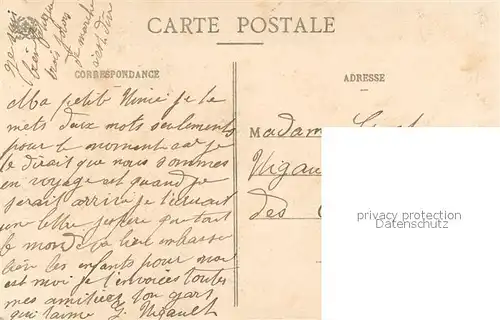 CARTE POSTALE
CORRESPONDANCE
ADRESSE
Ma petite Ninie je te
mets deux mots seulements
pour le moment car je
te dirait que nous sommes
en voyage et quand je
serait arrive je t'envair
un lettre j'espere que tout
le monde va bien embrasse
bien les enfants pour moi
et moi je t'envoices toutes
mes amitiées ton gars
qui t'aime J. Nigault
Madam
Nigau
des
privacy protection
Datenschutz